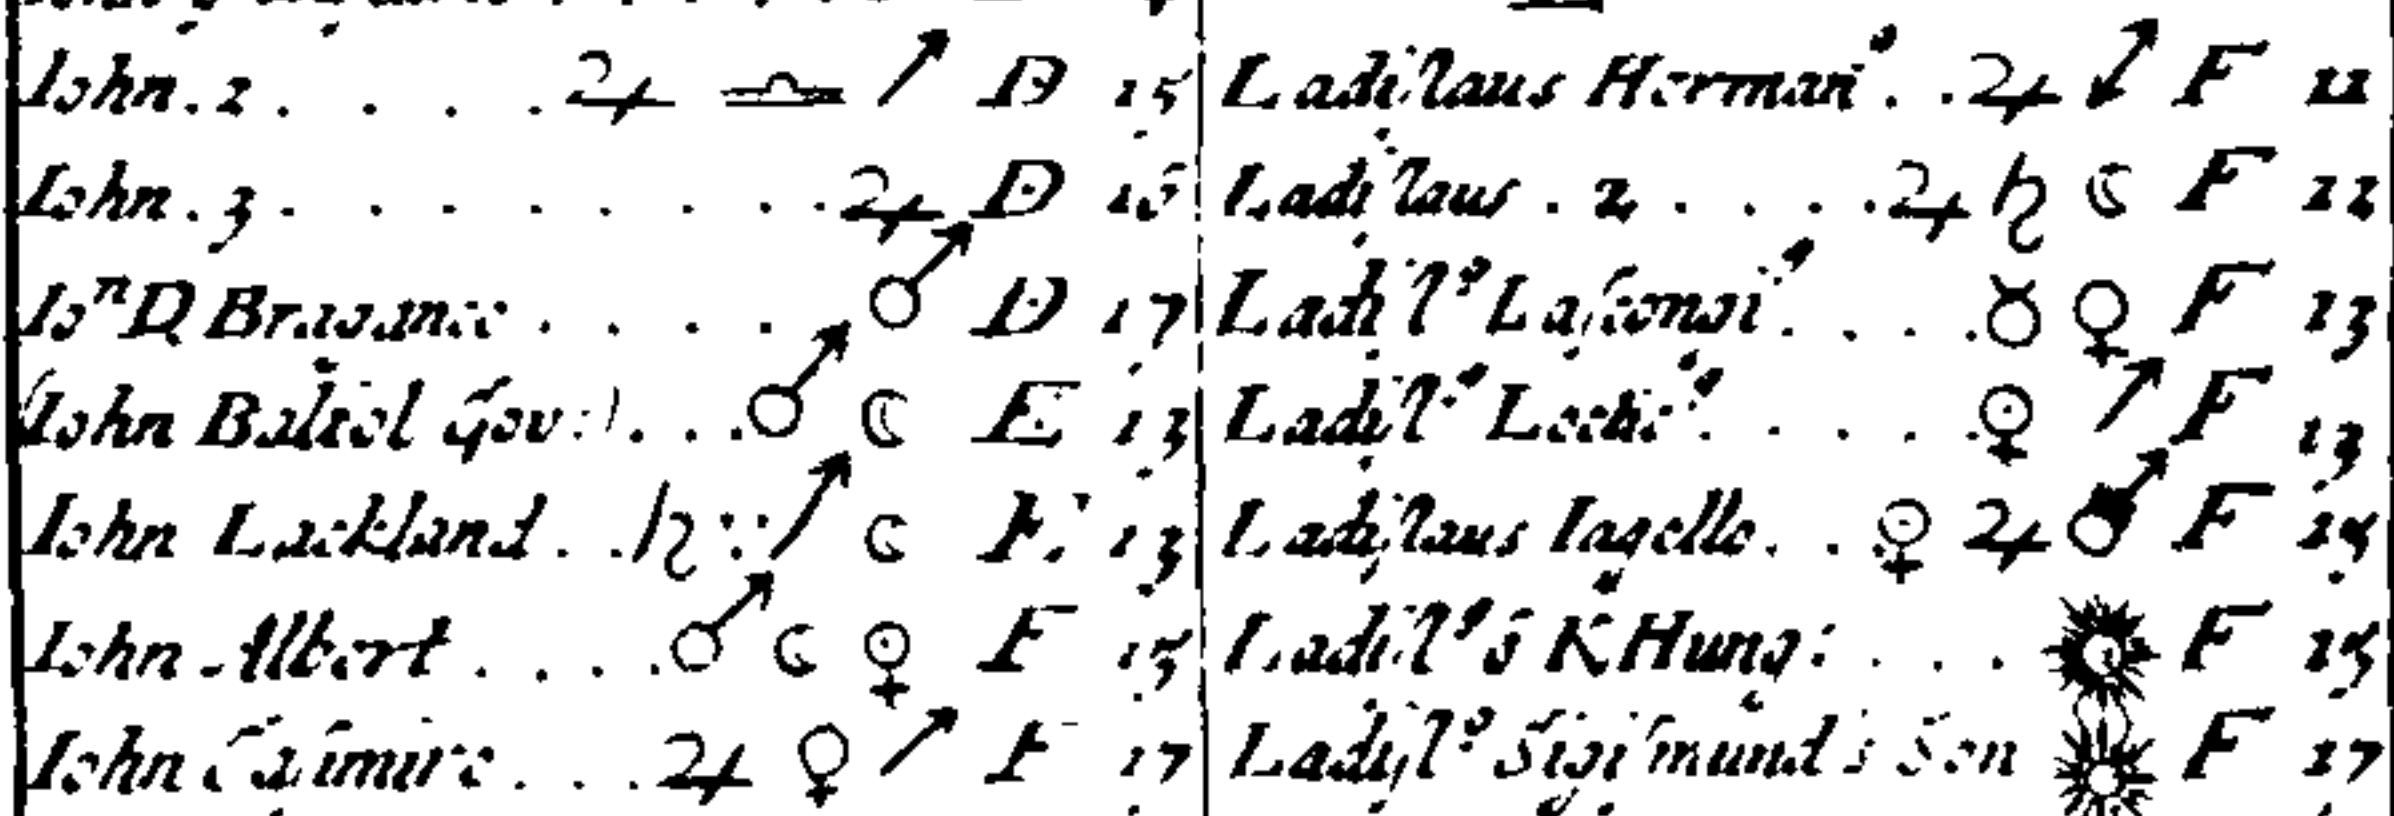 Iohn . 2 . . . . . ♃ ♎ ↗ D 15
Iohn . 3 . . . . . . . . . ♃ D 16
Ioⁿ D Braganze . . . . ♂ D 17
(Iohn Baleol Gov:) . . . ♂ ☾ E 13
Iohn Lackland . . ♄ ↗ ☾ E 13
Iohn Albert . . . . ♂ ☾ F 15
Iohn Casimire . . . ♃ ♀ ↗ F 17
Ladiſlaus Herman . . ♃ F 11
Ladiſlaus . 2 . . . . ♃ ♄ ☾ F 12
Ladiſlˢ . . . . ☿ ♀ F 13
Ladiſlˢ . . . . ↗ F 13
Ladiſlaus Iagello . . . ♃ ♂ F 14
Ladiſlˢ K Hung: . . . F 15
Ladyſlˢ Sigiſmund's Son F 17